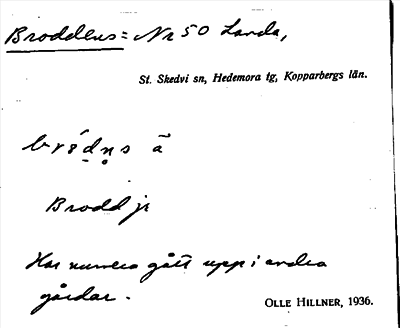 Broddens = Nr 50 Landa,
St. Skedvi sn, Hedemora tg, Kopparbergs län.
brǿdn̥s ā
Brodd jr
Har numera gått upp i andra
gårdar.
OLLE HILLNER, 1936.